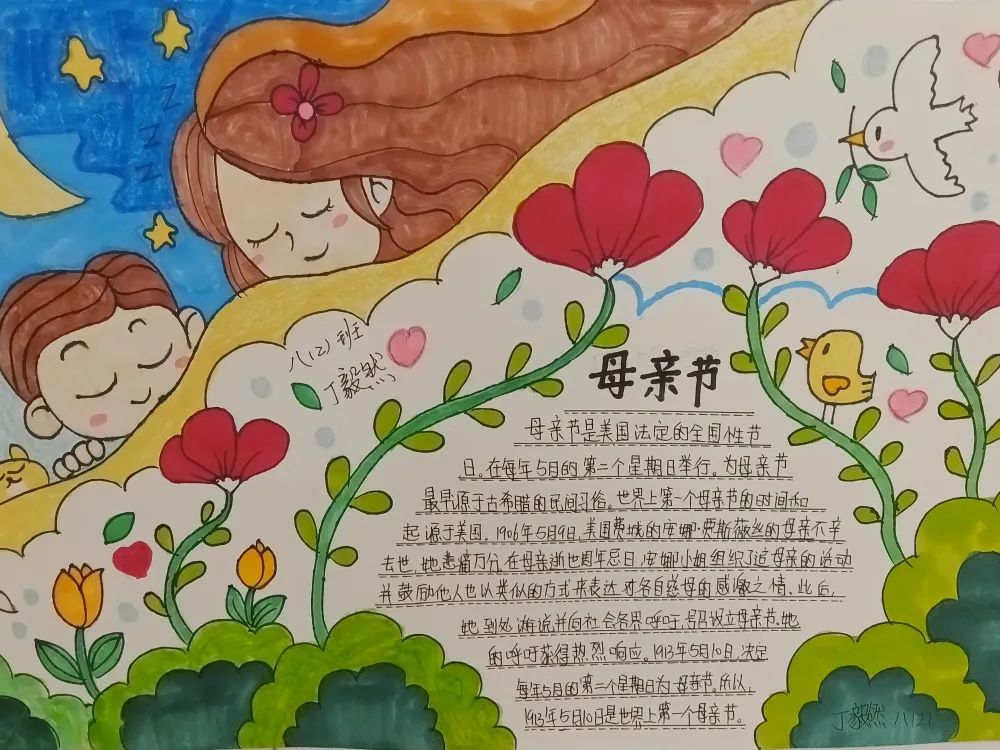 Z
Z
Z
八(2)班
丁毅然
母亲节
母亲节是美国法定的全国性节
日。在每年5月的第二个星期日举行。为母亲节
最早源于古希腊的民间习俗。世界上第一个母亲节的时间和
起源于美国。1906年5月9日,美国费城的安娜·贾斯薇丝的母亲不幸
去世,她悲痛万分。在母亲逝世周年忌日,安娜小姐组织了追母亲的活动
并鼓励他人也以类似的方式来表达对各自慈母的感激之情。此后,
她到处游说并向社会各界呼吁,号召设立母亲节。她
的呼吁获得热烈响应。1913年5月10日,决定
每年5月的第二个星期日为母亲节。所以,
1913年5月10日是世界上第一个母亲节。
丁毅然 八(2)